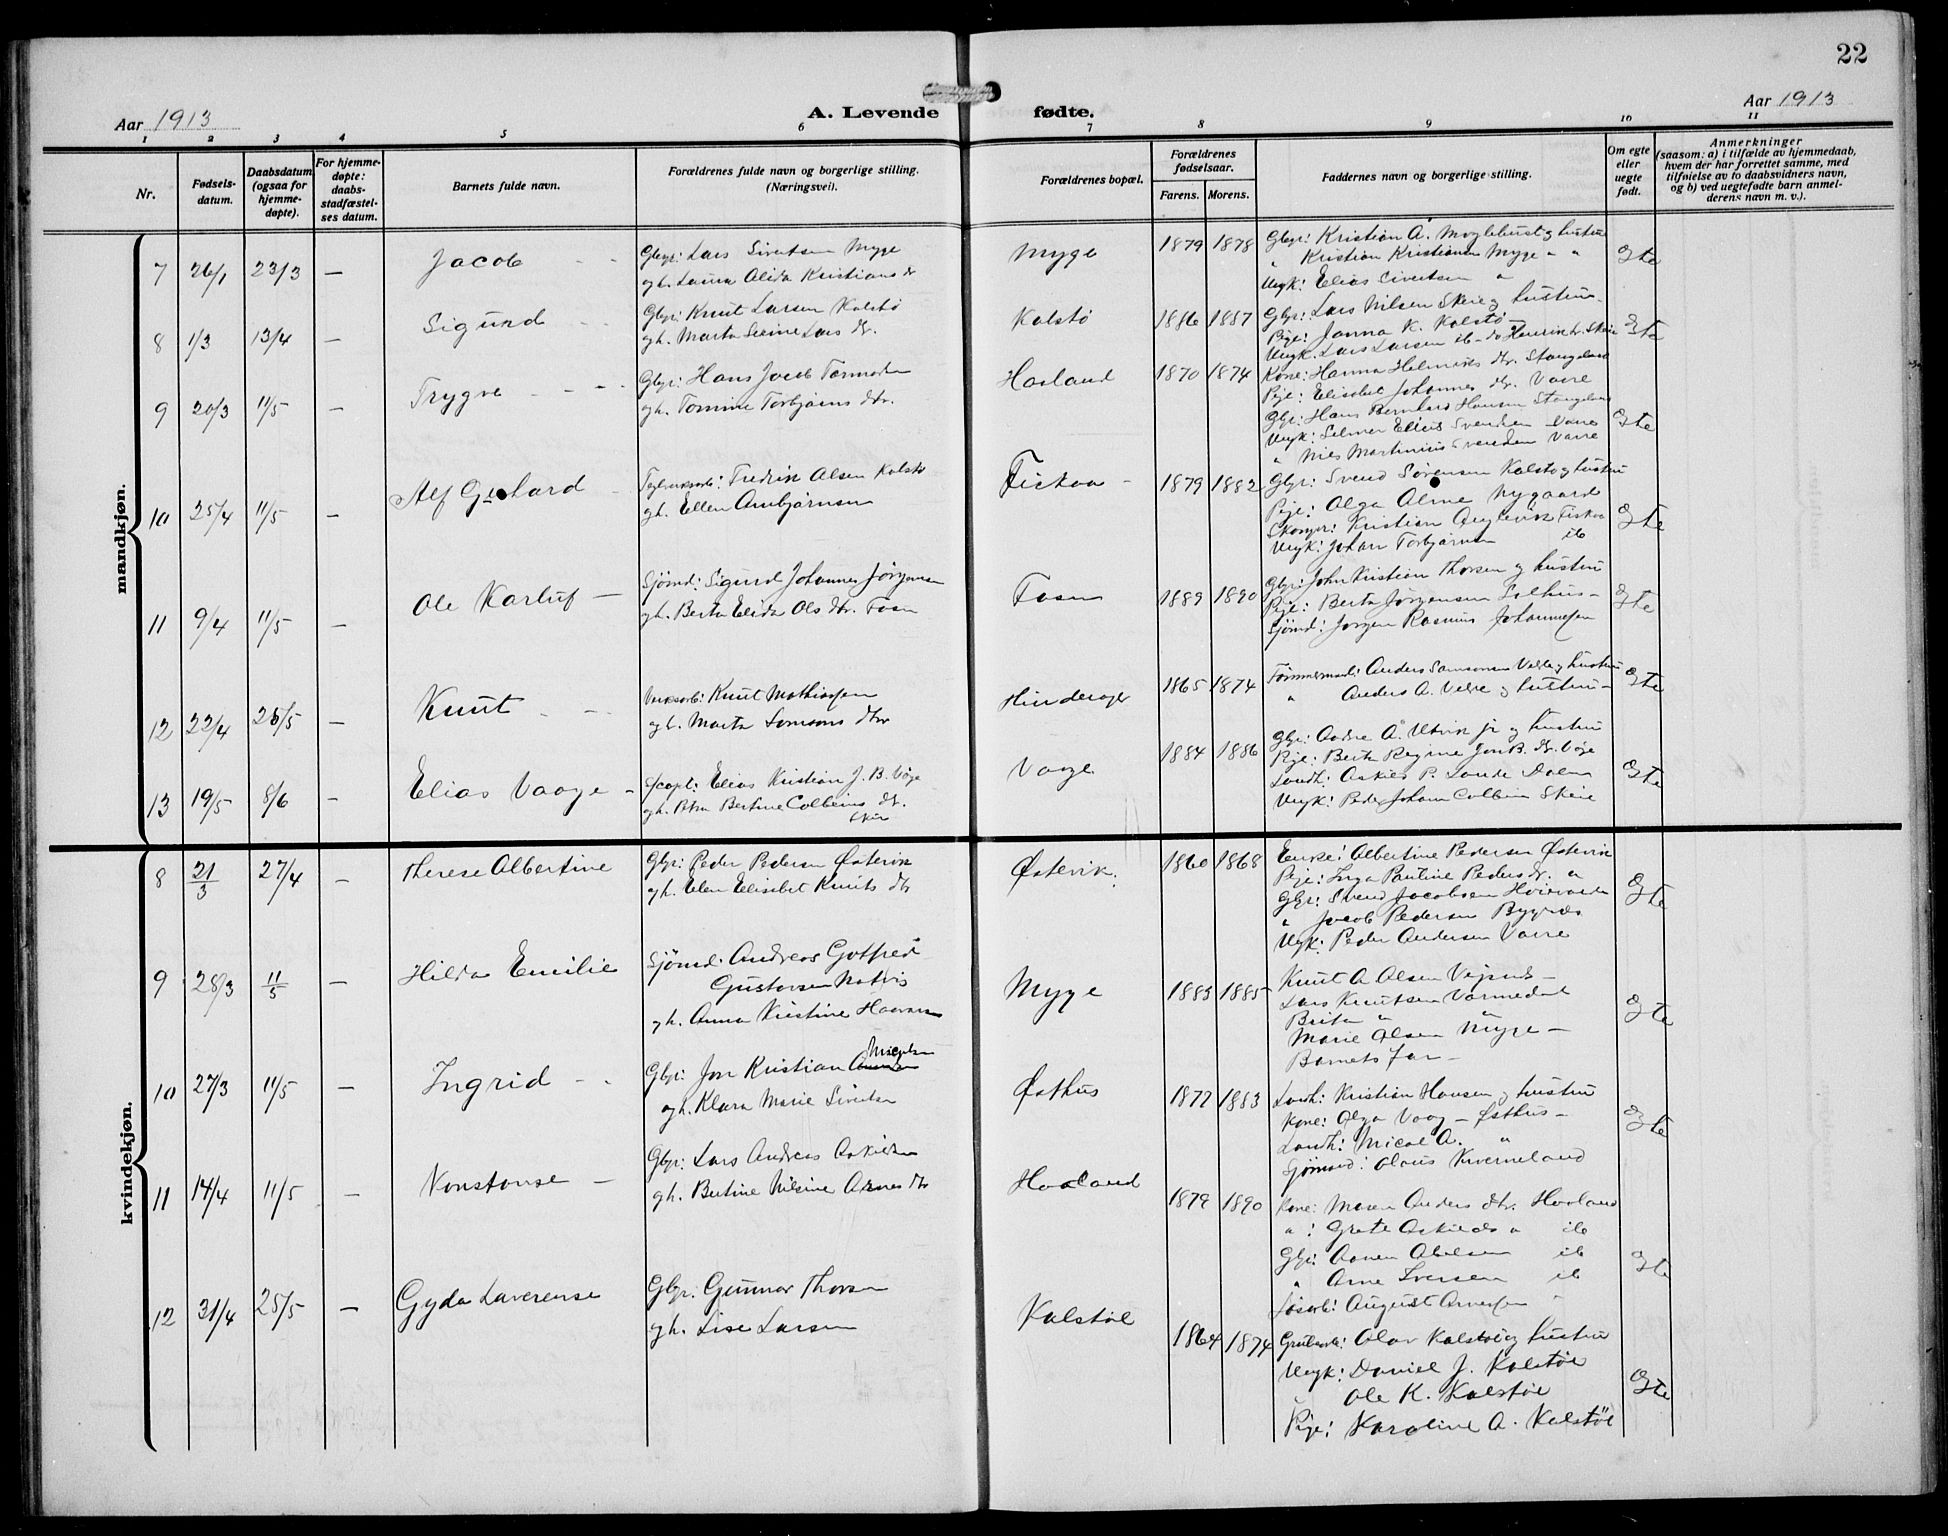 22
Aar 1913
A. Levende fødte.
Aar 1913
1 2 3 4 5 6 7 8 9 10 11
Nr.
Fødsels-
datum.
Daabsdatum
(ogsaa for
hjemme-
døpte).
For hjemme-
døpte:
daabs-
stadfæstel-
ses datum.
Barnets fulde navn.
Forældrenes fulde navn og borgerlige stilling.
(Næringsvei).
Forældrenes bopæl.
Forældrenes
fødselsaar.
Farens. Morens.
Faddernes navn og borgerlige stilling.
Om egte
eller
uegte
født.
Anmerkninger
(saasom: a) i tilfælde av hjemmedaab,
hvem der har forrettet samme, med
tilføielse av to daabsvidners navn,
og b) ved uegtefødte barn anmel-
derens navn m. v.).
mandkjøn.
7 26/1 23/3 — Jacob
Gbgr: Lars Sivertsen Myge
gh. Laura Alida Kristians dr
Myge 1879 1878
Gbgr: Kristian A. og hustru
" Kristian Kristiansen Myge " "
Ungk: Elias Sivertsen "
Egte
8 1/3 13/4 — Sigund
Gbgr: Knut Larsen Kalstø
gh. Marta Serine Lars dr.
Kalstø 1886 1887
Gbgr: Lars Nilsen Skeie og hustru
Pige: Janna K. Kalstø
Ungk. Lars Larsen ib - do Henrik Skeie
Egte
9 20/3 11/5 — Trygve
Gbgr: Hans Jacob Tormodsen
gh. Tomine Torbjørns dtr.
Haaland 1870 1874
Kone: Hanna Helmiks dtr. Stangeland
Pige: Elisabet Johannes dtr. Vaare
Gbgr: Hans Bernhard Hansen Stangeland
Ungk: Selmer Elius Svendsen Vaare
" Nils Martinius Svendsen Vaare
Egte
10 25/4 11/5 — Alf Gerhard
Fredrik Olsen Kalstø
gh. Ellen Anbjørnsen
Fiskaa 1879 1882
Gbgr: Svend Sørensen Kalstø og hustru
Pige: Olga Alme Nygaard
Kristian Fiskaa
Ungk: Johan Torbjørnsen ib
Egte
11 9/4 11/5 — Ole Karluf
Sjömd: Sigurd Johannes Jørgensen
gh. Berta Elida Ols dtr. Fosn
Fosn 1889 1890
Gbgr: John Kristian Thorsen og hustru
Pige: Berta Jørgensen Solhus
Sjömd: Jørgen Rasmus Johannesen
Egte
12 22/4 25/5 — Knut
Knut Mathiasen
gh. Marta Samsons dtr
Hinderager 1865 1874
Tømmermd: Anders Samsonsen Velde og hustru
" Anders A. Velde og hustru
Egte
13 19/5 8/6 — Elias Vaage
Elias Kristian J. B. Våge
gh. Petra Bertine Colbeins dr.
Skeie
Vaage 1884 1886
Gbgr: Andre A. Utvik jr og hustru
Pige: Berta Regine Jon B. dr. Våge
Landh: Askild P. Lande Dalen
Ungk: Peder Johan Colbein Skeie
Egte
kvindekjøn.
8 21/3 27/4 — Therese Albertine
Gbgr: Peder Pedersen Østevik
gh. Elen Elisebet Knuts dtr
Østevik 1860 1868
Enke: Albertine Pedersen Østevik
Pige: Inga Pauline Peders dr. "
Gbgr: Svend Jacobsen
" Jacob Pedersen Bygnes
Ungk: Peder Andersen Vaare
Egte
9 28/3 11/5 — Hilda Emilie
Sjömd: Andreas Gotfred
Gustavsen
gh. Anna Kristine Haavarsen
Myge 1883 1885
Knut A. Olsen
Lars Knutsen Varmedal
Brita " "
Marie Olsen Myge —
Barnets far —
Egte
10 27/3 11/5 — Ingrid
Gbgr: Jon Kristian
gh. Klara Marie Sivertsen
Østhus 1872 1883
Landh: Kristian Hansen og hustru
Kone: Olga Vaag — Østhus —
Landh: Micael A. "
Sjömand: Olaus Kverneland
Egte
11 14/4 11/5 — Konstanse
Gbgr: Lars Andreas Askildsen
gh. Bertine Nilsine Arnes dtr
Haaland 1879 1890
Kone: Maren Anders dtr. Haaland
" : Grete Askilds " ib
Gbgr: Aanen Abelsen ib
" Arne Iversen ib
Løsarb: August Arnesen "
Egte
12 31/4 25/5 — Gyda Laverense
Gbgr. Gunnar Thorsen
gh. Lise Larsen
Kalstøl
1864 1874
Grubearb: Olav Kalstøl og hustru
Ungk: Daniel J. Kalstøl
" Ole K. Kalstøl
Pige: Karoline A. Kalstøl
Egte